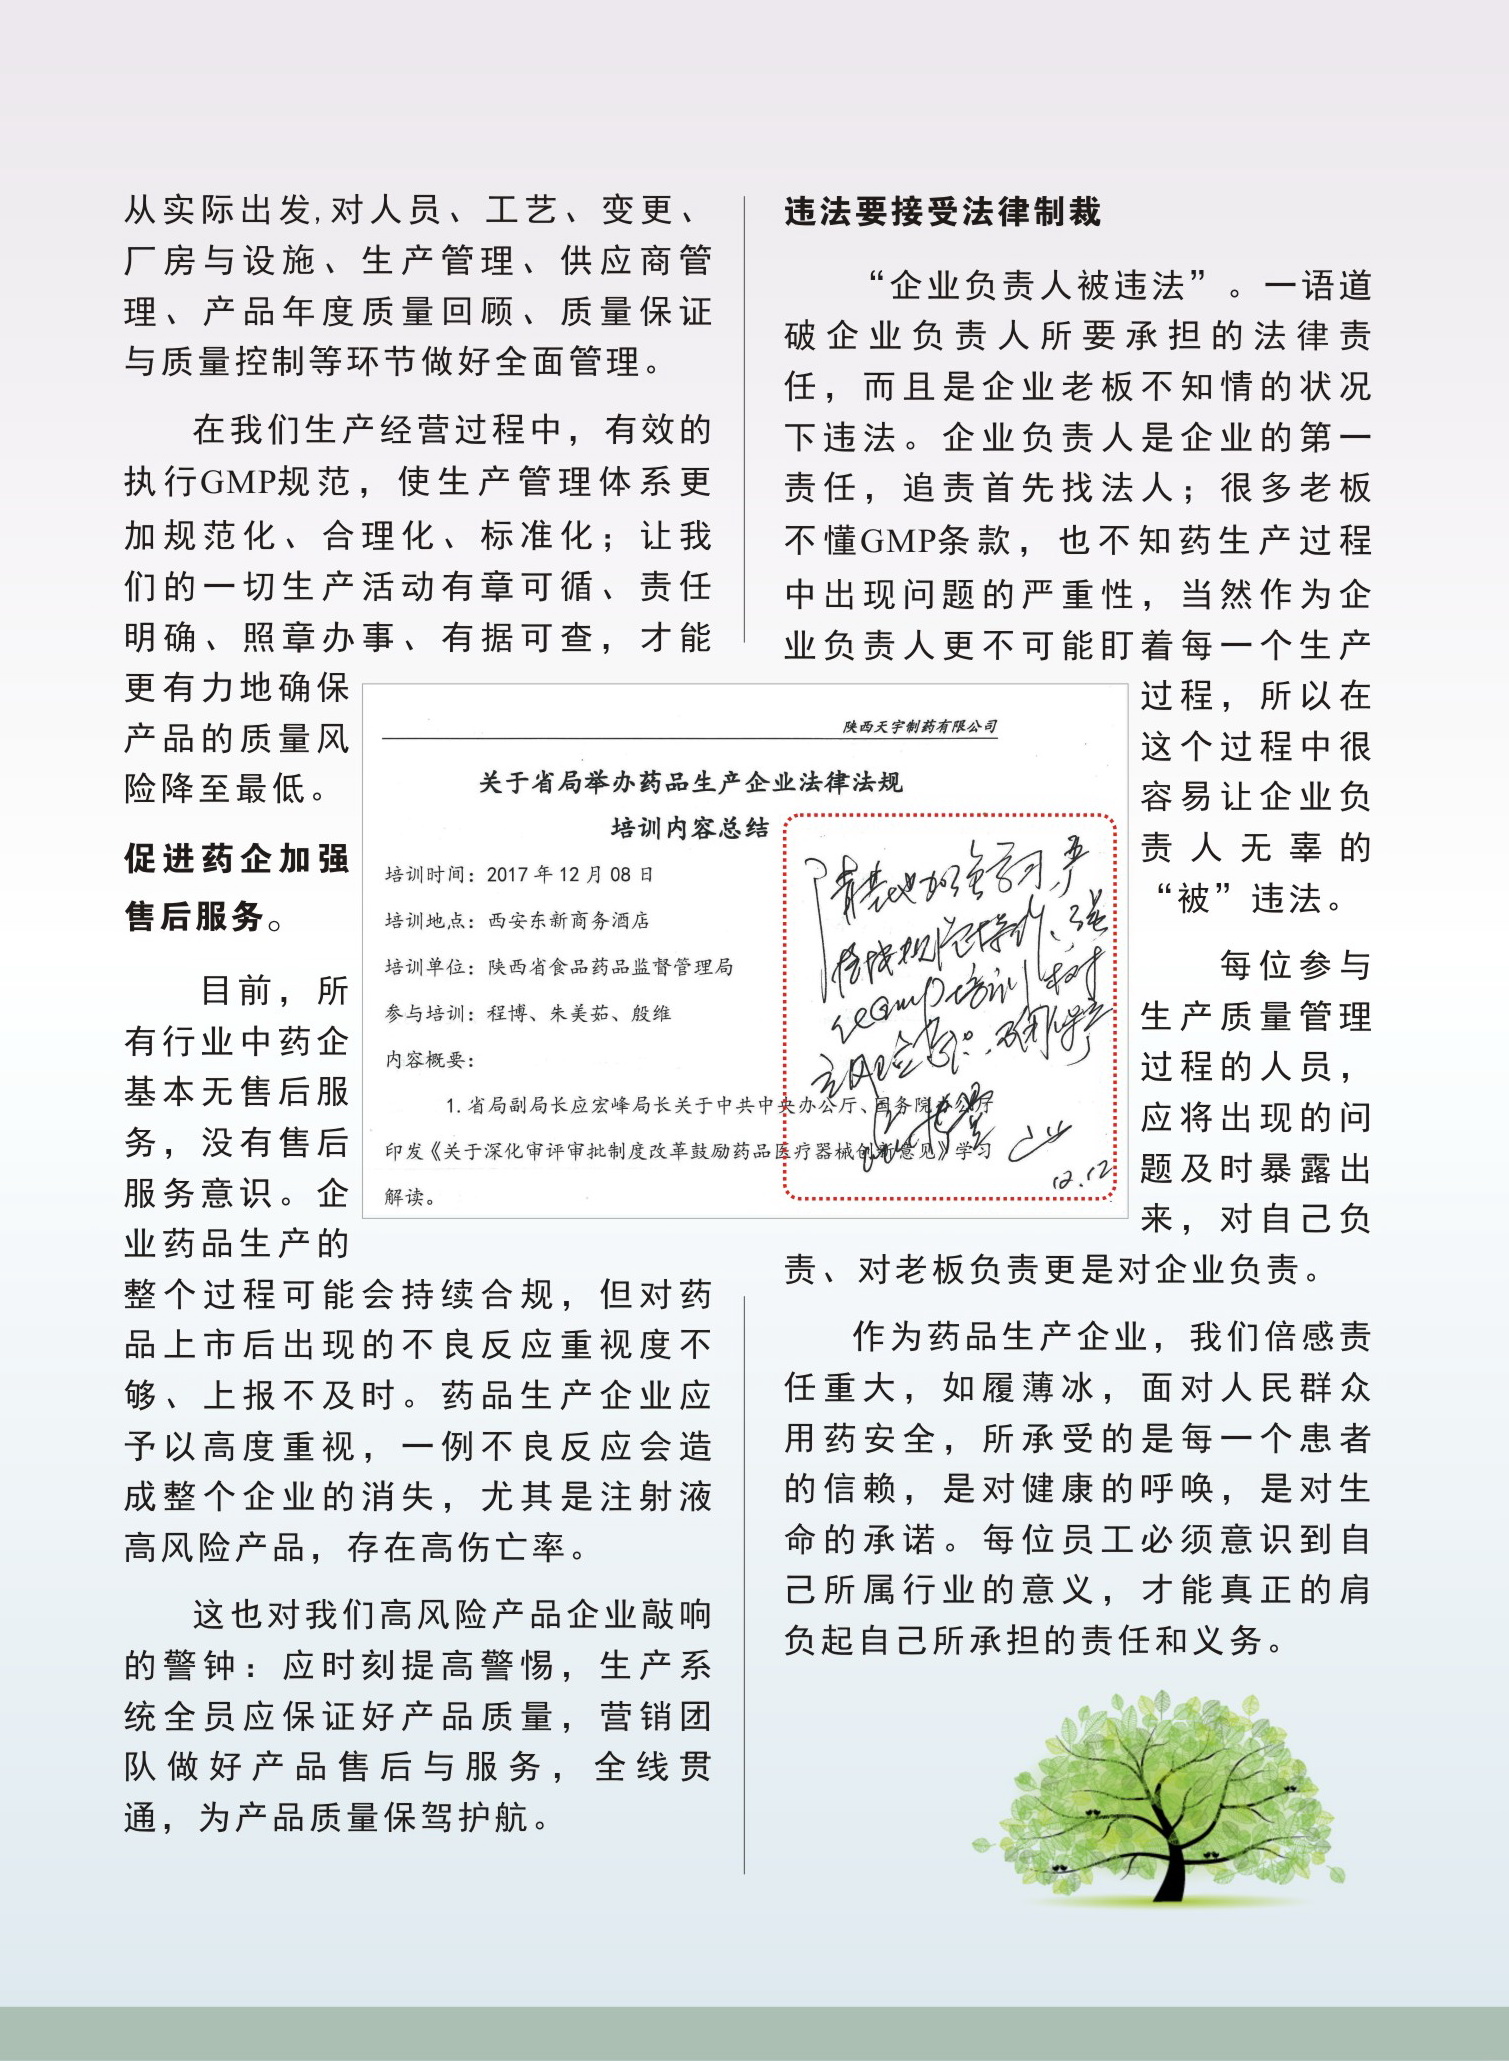 从实际出发,对人员、工艺、变更、
厂房与设施、生产管理、供应商管
理、产品年度质量回顾、质量保证
与质量控制等环节做好全面管理。
在我们生产经营过程中，有效的
执行GMP规范，使生产管理体系更
加规范化、合理化、标准化；让我
们的一切生产活动有章可循、责任
明确、照章办事、有据可查，才能
更有力地确保
产品的质量风
险降至最低。
促进药企加强
售后服务。
目前，所
有行业中药企
基本无售后服
务，没有售后
服务意识。企
业药品生产的
整个过程可能会持续合规，但对药
品上市后出现的不良反应重视度不
够、上报不及时。药品生产企业应
予以高度重视，一例不良反应会造
成整个企业的消失，尤其是注射液
高风险产品，存在高伤亡率。
这也对我们高风险产品企业敲响
的警钟：应时刻提高警惕，生产系
统全员应保证好产品质量，营销团
队做好产品售后与服务，全线贯
通，为产品质量保驾护航。
陕西天宇制药有限公司
关于省局举办药品生产企业法律法规
培训内容总结
培训时间：2017年12月08日
培训地点：西安东新商务酒店
培训单位：陕西省食品药品监督管理局
参与培训：程博、朱美茹、殷维
内容概要：
1.省局副局长应宏峰局长关于中共中央办公厅、国务院办公厅
印发《关于深化审评审批制度改革鼓励药品医疗器械创新意见》学习
解读。
12.12
违法要接受法律制裁
“企业负责人被违法”。一语道
破企业负责人所要承担的法律责
任，而且是企业老板不知情的状况
下违法。企业负责人是企业的第一
责任，追责首先找法人；很多老板
不懂GMP条款，也不知药生产过程
中出现问题的严重性，当然作为企
业负责人更不可能盯着每一个生产
过程，所以在
这个过程中很
容易让企业负
责人无辜的
“被”违法。
每位参与
生产质量管理
过程的人员，
应将出现的问
题及时暴露出
来，对自己负
责、对老板负责更是对企业负责。
作为药品生产企业，我们倍感责
任重大，如履薄冰，面对人民群众
用药安全，所承受的是每一个患者
的信赖，是对健康的呼唤，是对生
命的承诺。每位员工必须意识到自
己所属行业的意义，才能真正的肩
负起自己所承担的责任和义务。